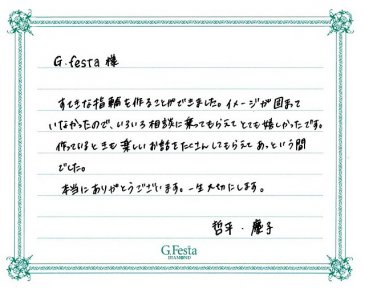 G.festa 様
すてきな指輪を作ることができました。イメージが固まって
いなかったので、いろいろ相談に乗ってもらえてとても嬉しかったです。
作っているときも楽しいお話をたくさんしてもらえてあっという間
でした。
本当にありがとうございます。一生大切にします。
哲平・慶子
G.Festa
DIAMOND